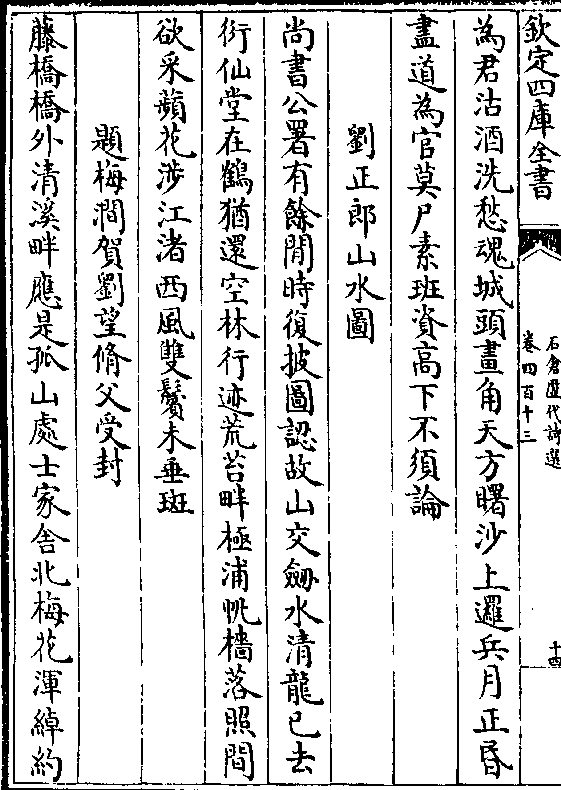 欽定四庫全書
石倉歷代詩選
卷四百十三
十四
為君沽酒洗愁魂城頭畫角天方曙沙上邏兵月正昏
盡道為官莫尸素班資高下不須論
劉正郎山水圖
尚書公署有餘閒時復披圖認故山交劒水清龍已去
衍仙堂在鶴猶還空林行迹荒苔畔極浦帆檣落照間
欲采蘋花涉江渚西風雙鬢未垂斑
題梅澗賀劉望脩父受封
藤橋橋外清溪畔應是孤山處士家舎北梅花渾綽約